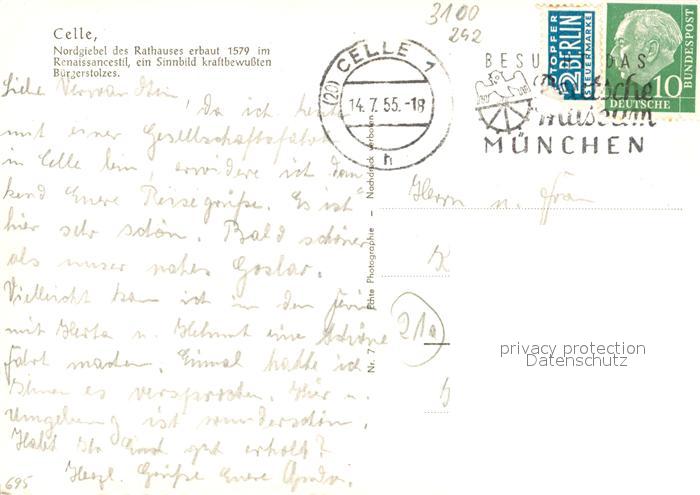 3100
242
Celle,
Nordgiebel des Rathauses erbaut 1579 im
Renaissancestil, ein Sinnbild kraftbewußten
Bürgerstolzes.
(20) CELLE 1
14.7.55.-18
h
NOTOPFER
2 BERLIN
STEUERMARKE
DEUTSCHE BUNDESPOST
10
BESUCHT DAS
Deutsche
Museum
MÜNCHEN
Liebe Verwandten!
Da ich heute
mit einer Gesellschaftsfahrt
in Celle bin, erwidere ich dan-
kend Euere Reisegrüße. Es ist
hier sehr schön. Bald schöner
als unser nahes Goslar.
Vielleicht kann ich in den Ferien
mit Herta u. Helmut eine schöne
Fahrt machen. Einmal hatte ich
Ihnen es versprochen. Hier u.
Umgebung ist wunderschön.
Habt Ihr Euch gut erholt?
Herzl. Grüße Euere
695
Herrn u. Frau
21a
Nr. 7 Echte Photographie - Nachdruck verboten
privacy protection
Datenschutz